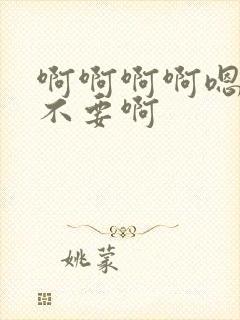 啊啊啊啊嗯
不要啊
姚蒙